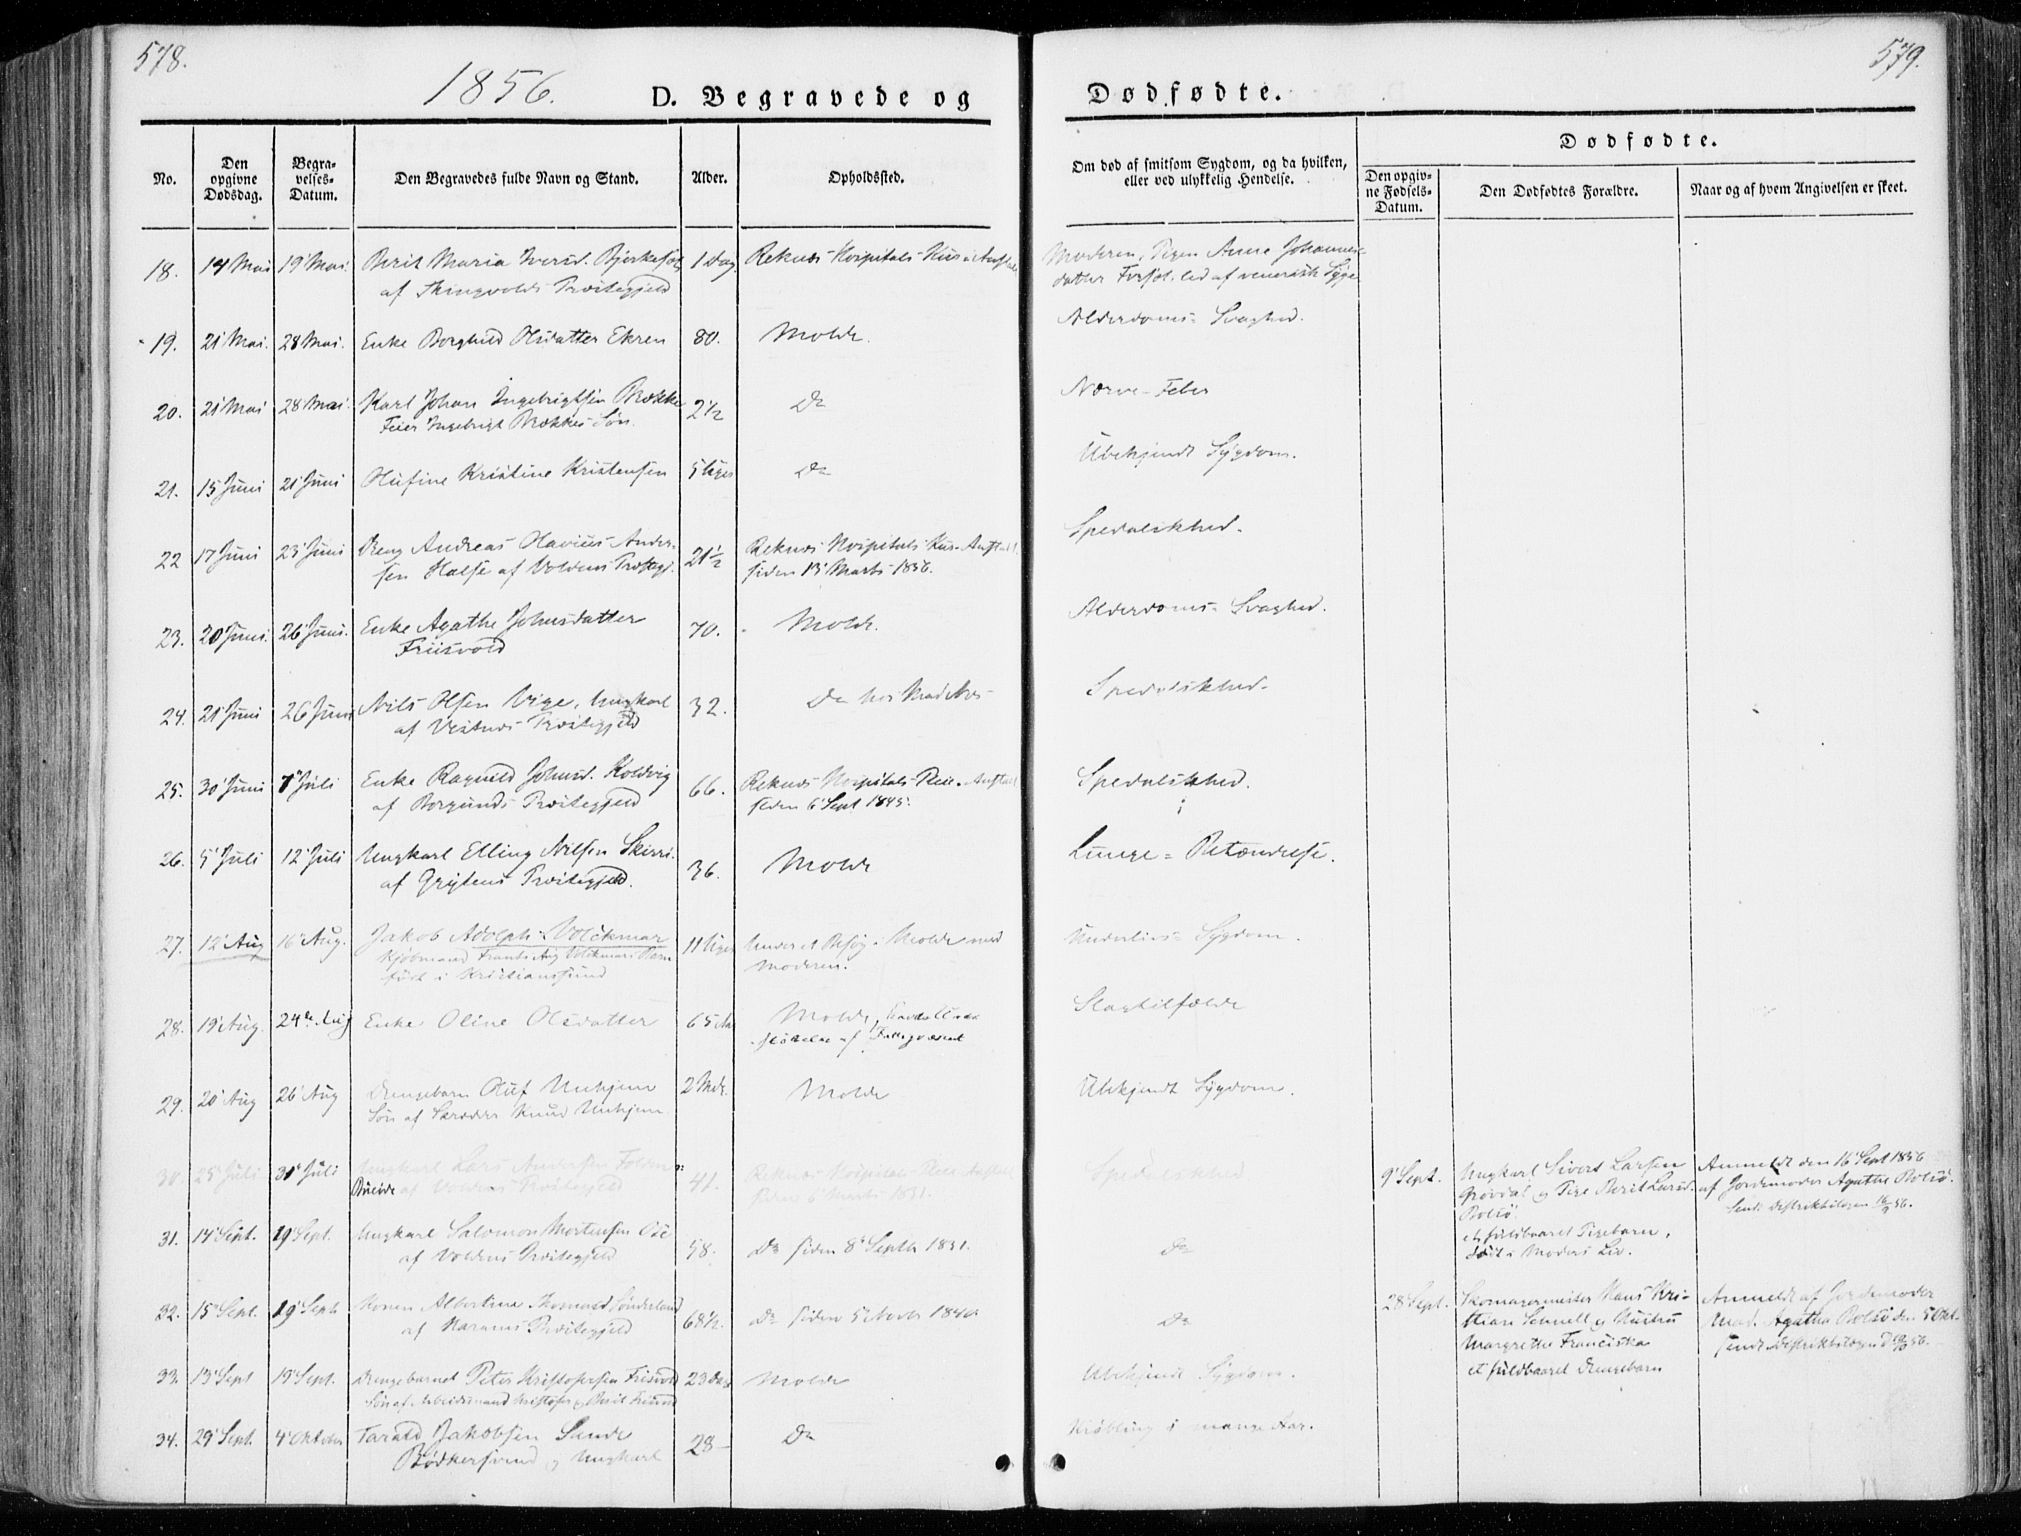 578.
1856.
D. Begravede og
Dødfødte.
579.
No.
Den opgivne Dødsdag.
Begravelses-Datum.
Den Begravedes fulde Navn og Stand.
Alder.
Opholdssted.
Om død af smitsom Sygdom, og da hvilken,
eller ved ulykkelig Hendelse.
Dødfødte.
Den opgivne Fødsels-Datum.
Den Dødfødtes Forældre.
Naar og af hvem Angivelsen er skeet.
18. 14 Mai 19 Mai. Berit Maria Iversd. 1 Dag Reknes Hospitals Kur-Anstalt Moderen, Pigen Anne Johannes-
af Thingvolds Præstegjeld datter led af venerisk Syge
19. 21 Mai. 28 Mai. Enke Borghild Olsdatter Ekren 80. Molde. Alderdoms-Svaghed.
20. 21 Mai 28 Mai. Karl Johan Ingebrigtsen Brække 2½ Do Nerve-Feber
Feier Ingebrigt Brækkes Søn.
21. 15 Juni 21 Juni Olufine Kristine Kristensen 5 Uger Do Ubekjendt Sygdom.
22 17 Juni 23 Juni Dreng Andreas Olavius Ander- 21½ Reknes Hospitals Kur-Anstalt Spedalskhed.
sen Halse af Voldens Præstegj. siden 13 Marts 1856.
23. 20 Juni. 26 Juni. Enke Agathe Johnsdatter 70. Molde. Alderdoms-Svaghed.
Friisvold
24. 21 Juni 26 Juni Nils Olsen Vige, Ungkarl 32. Do hos Spedalskhed.
af Vestnes Præstegjeld
25. 30 Juni 7 Juli Enke Ragnild Johnsd. Koldvig 66. Reknes Hospitals Pleie-Anstalt Spedalskhed.
af Borgunds Præstegjeld siden 6 Sept 1845.
26. 5 Juli 12 Juli Ungkarl Elling Nilsen Skirri. 36. Molde Lunge-Betændelse.
af Grytens Præstegjeld.
27. 12 Aug 16 Aug. Jakob Adolph Volckmar 11 Uger Under et Besøg i Molde med Underlivs-Sygdom.
Kjöbmand Frants Aug Volckmars Barn Moderen.
født i Kristianssund
28. 19 Aug. 24de Aug Enke Oline Olsdatter 65 Aar Molde, Slagtilfælde
af Fattigvæsenet
29. 20 Aug 26 Aug Drengebarn Oluf Unhjem 2 Mdr. Molde Ubekjendt Sygdom.
Søn af Skræder Knud Unhjem
30. 25 Juli 31 Juli Ungkarl Lars Andersen Folden 41. Reknes Hospitals Pleie Anstalt Spedalskhed
af Voldens Præstegjeld siden 6 Marts 1851.
9 Sept. Ungkarl Sivert Larsen Anmeldt den 16 Sept 1856
Grøvdal og Pige Berit Larsd. af Jordemoder Agathe Bolsö.
Bolsö. Sendt Distriktslægen 16/9 56.
et fuldbaaret Pigebarn,
død i Moders Liv.
31. 14 Sept. 19 Sept. Ungkarl Salomon Mortensen Ose 58. Do siden 8 Septbr 1851. Do
af Voldens Præstegjeld
32. 15 Sept. 19 Sept. Konen Albertine 68½. Do siden 5 1840 Do
af Harams Præstegjeld
28 Sept. Skomagermester Hans Kri- Anmeldt af Jordemoder
stian Schnell og Hustru Mad. Agatha Bolsö den 5 Okt.
Margrethe Franciska sendt Distriktslægen
et fuldbaaret Drengebarn
33. 13 Sept 19 Sept. Drengebarnet Peter Kristofersen Friisvold 23 Dage Molde Ubekjendt Sygdom.
Søn af Arbeidsmand Kristofer og Berit Friisvold
34. 29 Sept. 4 Oktober Farald Jakobsen Sande 28 Do Krøbling i mange Aar.
Bødkersvend og Ungkarl